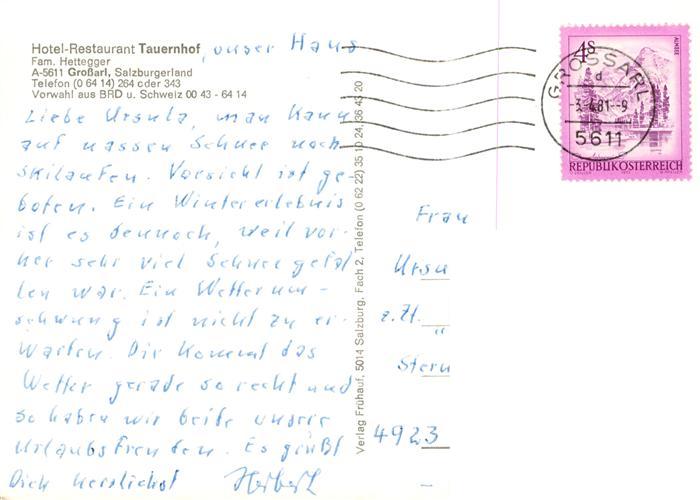 Hotel-Restaurant Tauernhof, unser Haus
Fam. Hettegger
A-5611 Großarl, Salzburgerland
Telefon (0 64 14) 264 oder 343
Vorwahl aus BRD u. Schweiz 00 43 - 64 14
Liebe Ursula, man kann
auf nassen Schnee noch
skilaufen. Vorsicht ist ge-
boten. Ein Wintererlebnis
ist es dennoch, weil vor-
her sehr viel Schnee gefal
len war. Ein Wetterum-
schwung ist nicht zu er-
warten. Dir kommt das
Wetter gerade so recht und
so haben wir beide unsere
Urlaubsfreuden. Es grüßt
Dich herzlichst Herbert
Verlag Frühauf, 5014 Salzburg, Fach 2, Telefon (0 62 22) 35 10 24, 36 43 20
4 S
ALMSEE
REPUBLIK ÖSTERREICH
GROSSARL
d
-3.-4.81.--9
5611
Frau
Ursu
z.Zt.
"
Stern
4923